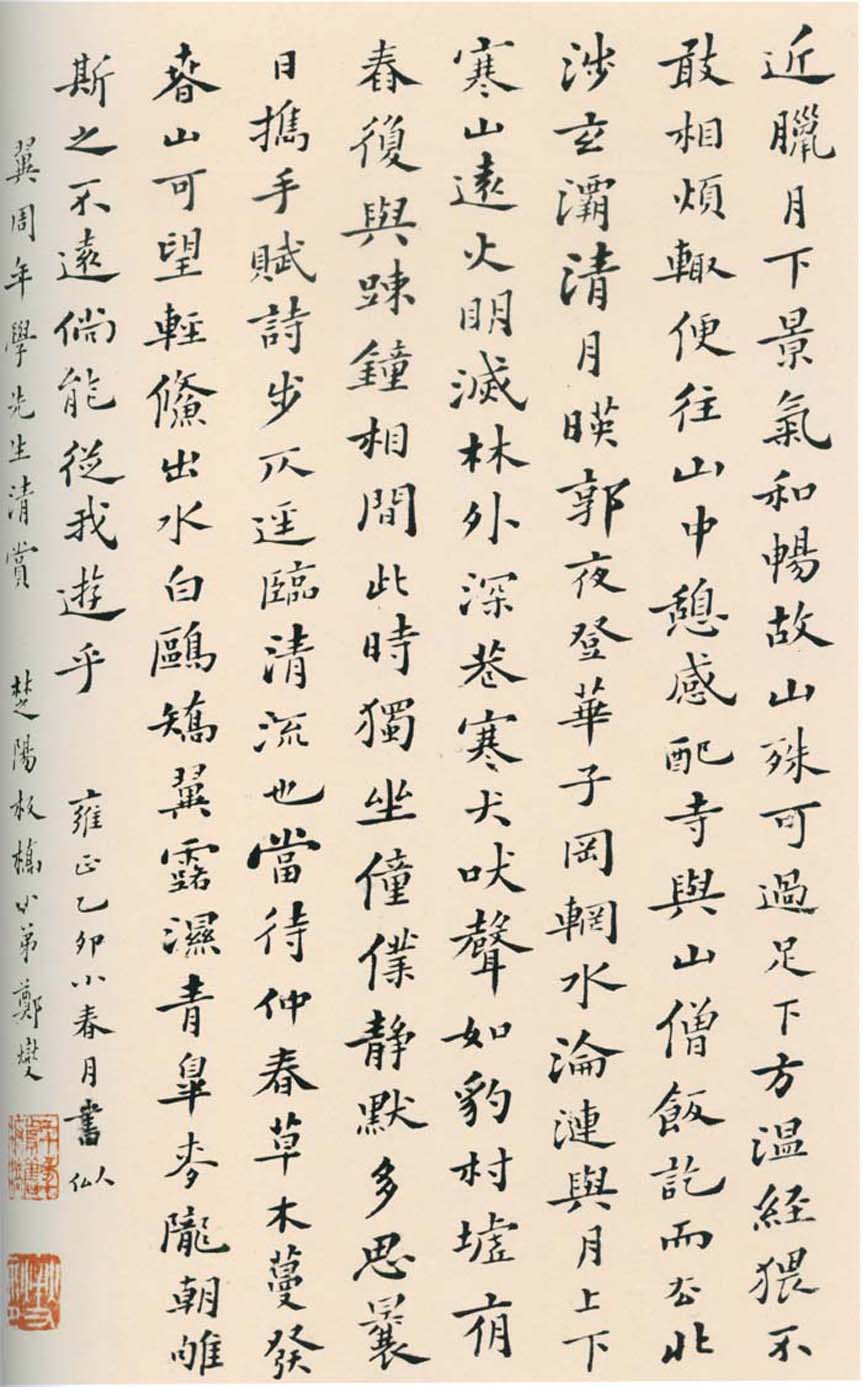 近臘月下景氣和暢故山殊可過足下方温経猥不
敢相煩輙便往山中憩感配寺與山僧飯訖而去北
涉玄灞清月暎郭夜登華子岡輞水淪漣與月上下
寒山遠火明滅林外深巷寒犬吠聲如豹村墟夜
舂復與踈鐘相間此時獨坐僮僕静默多思曩
日攜手賦詩步仄逕臨清流也當待仲春草木蔓發
春山可望輕鯈出水白鷗矯翼露濕青皐麥隴朝雊
斯之不遠倘能從我遊乎 雍正乙卯小春月書似
翼周年學先生清賞 楚陽板橋小弟鄭燮